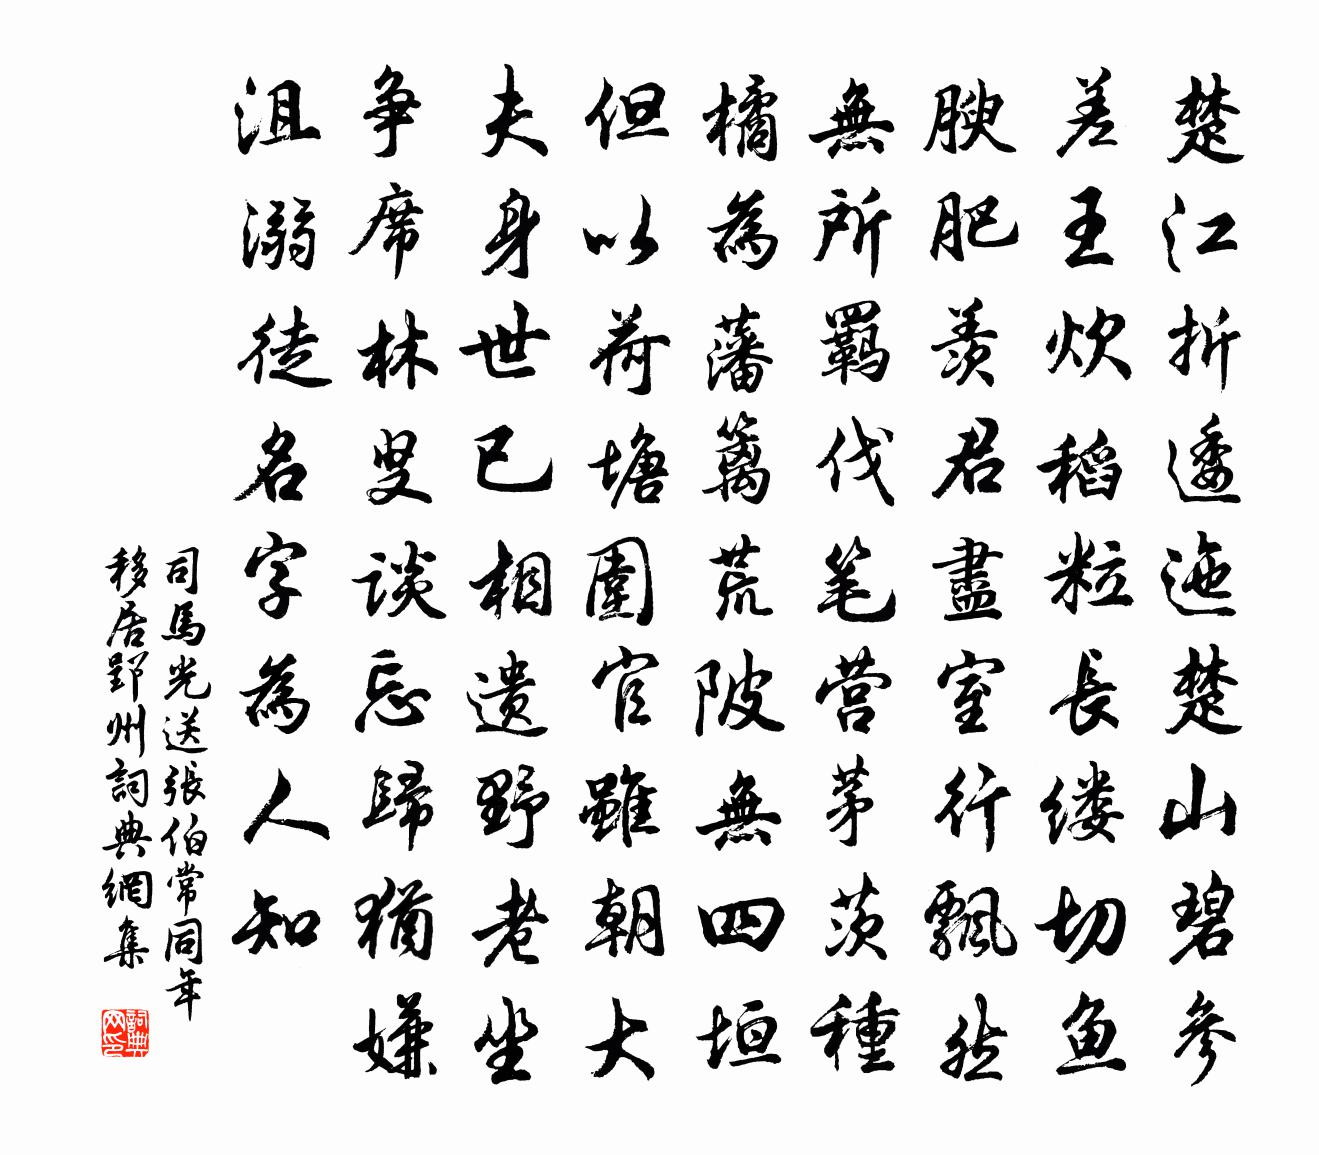 楚江折逶迤楚山碧參
差玉炊稻粒長缕切鱼
腴肥羨君盡室行飄然
無所羈伐笔营茅茨種
橘為藩篱荒陂無四垣
但以荷塘圍官雖朝大
夫身世已相遗野老坐
争席林叟談忘歸猶嫌
沮溺徒名字為人知
司馬光送張伯常同年
移居郢州詞典網集
詞典网印